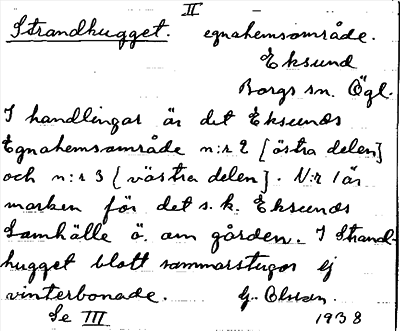 II
Strandhugget. egnahemsområde.
Eksund
Borgs sn. Ögl.
I handlingar är det Eksunds
Egnahemsområde n:r 2 [östra delen]
och n:r 3 [västra delen]. N:r 1 är
marken för det s.k. Eksunds
samhälle ö. om gården. I Strand-
hugget blott sommarstugor ej
vinterbonade. G. Olsson.
Se III 1938